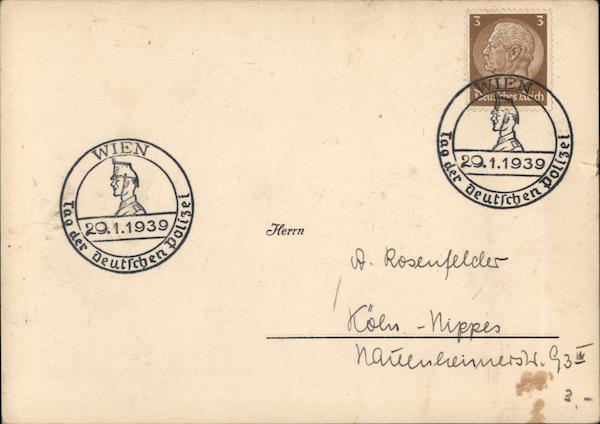 3 3
Deutsches Reich
WIEN
29.1.1939
Tag der Deutschen Polizei
WIEN
29.1.1939
Tag der Deutschen Polizei
Herrn
A. Rosenfelder
Köln-Nippes
93 III
3.-